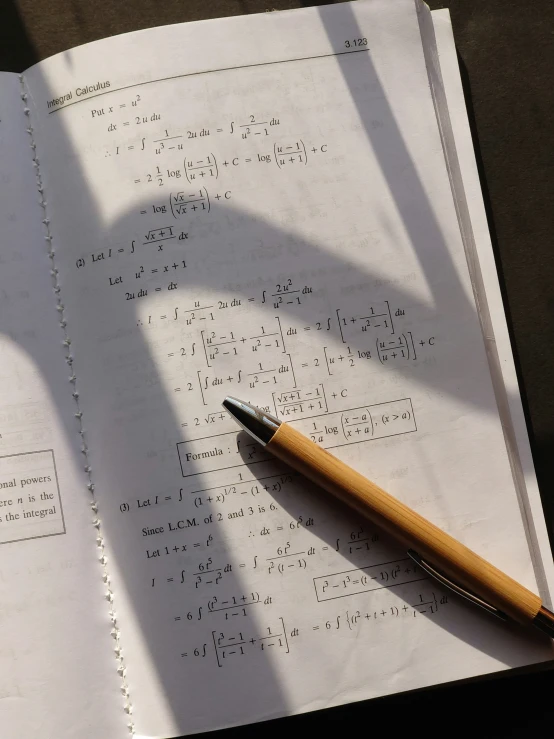 Integral Calculus 3.123
Put x = u²
dx = 2u du
∴ I = ∫ 1/(u³ − u) 2u du = ∫ 2/(u² − 1) du
= 2 1/2 log ((u − 1)/(u + 1)) + C = log ((u − 1)/(u + 1)) + C
= log ((√x − 1)/(√x + 1)) + C
(2) Let I = ∫ √(x+1)/x dx
Let u² = x + 1
2u du = dx
∴ I = ∫ u/(u² − 1) 2u du = ∫ 2u²/(u² − 1) du
= 2 ∫ [(u² − 1)/(u² − 1) + 1/(u² − 1)] du = 2 ∫ [1 + 1/(u² − 1)] du
= 2 [∫ du + ∫ 1/(u² − 1) du] = 2 [u + 1/2 log ((u − 1)/(u + 1))] + C
= 2 √x + log [(√(x+1) − 1)/(√(x+1) + 1)] + C
Formula : ∫ 1/2a log ((x − a)/(x + a)), (x > a)
(3) Let I = ∫ 1/((1 + x)^1/2 − (1 + x)
Since L.C.M. of 2 and 3 is 6.
Let 1 + x = t⁶ ∴ dx = 6t⁵ dt
I = ∫ 6t⁵/(t³ − t²) dt = ∫ 6t⁵/(t² (t − 1)) dt = ∫ 6t³/(t − 1)
t³ − 1³ = (t − 1) (t² +
= 6 ∫ (t³ − 1 + 1)/(t − 1) dt
= 6 ∫ [(t³ − 1)/(t − 1) + 1/(t − 1)] dt = 6 ∫ {(t² + t + 1) + 1/(t − 1)} dt
onal powers
ere n is the
s the integral